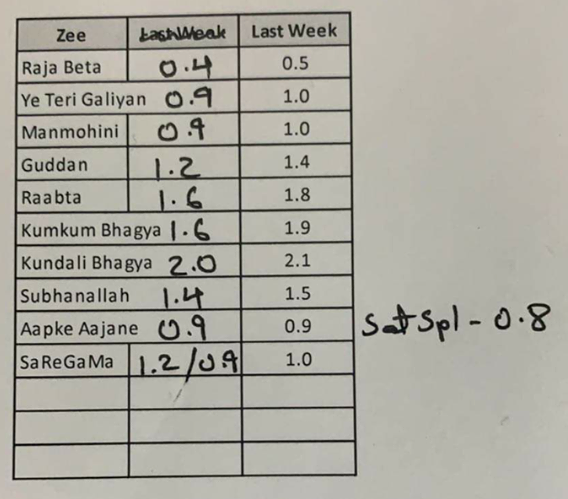 Zee Last Week Last Week
Raja Beta 0.4 0.5
Ye Teri Galiyan 0.9 1.0
Manmohini 0.9 1.0
Guddan 1.2 1.4
Raabta 1.6 1.8
Kumkum Bhagya 1.6 1.9
Kundali Bhagya 2.0 2.1
Subhanallah 1.4 1.5
Aapke Aajane 0.9 0.9 Sat Spl - 0.8
SaReGaMa 1.2/0.9 1.0